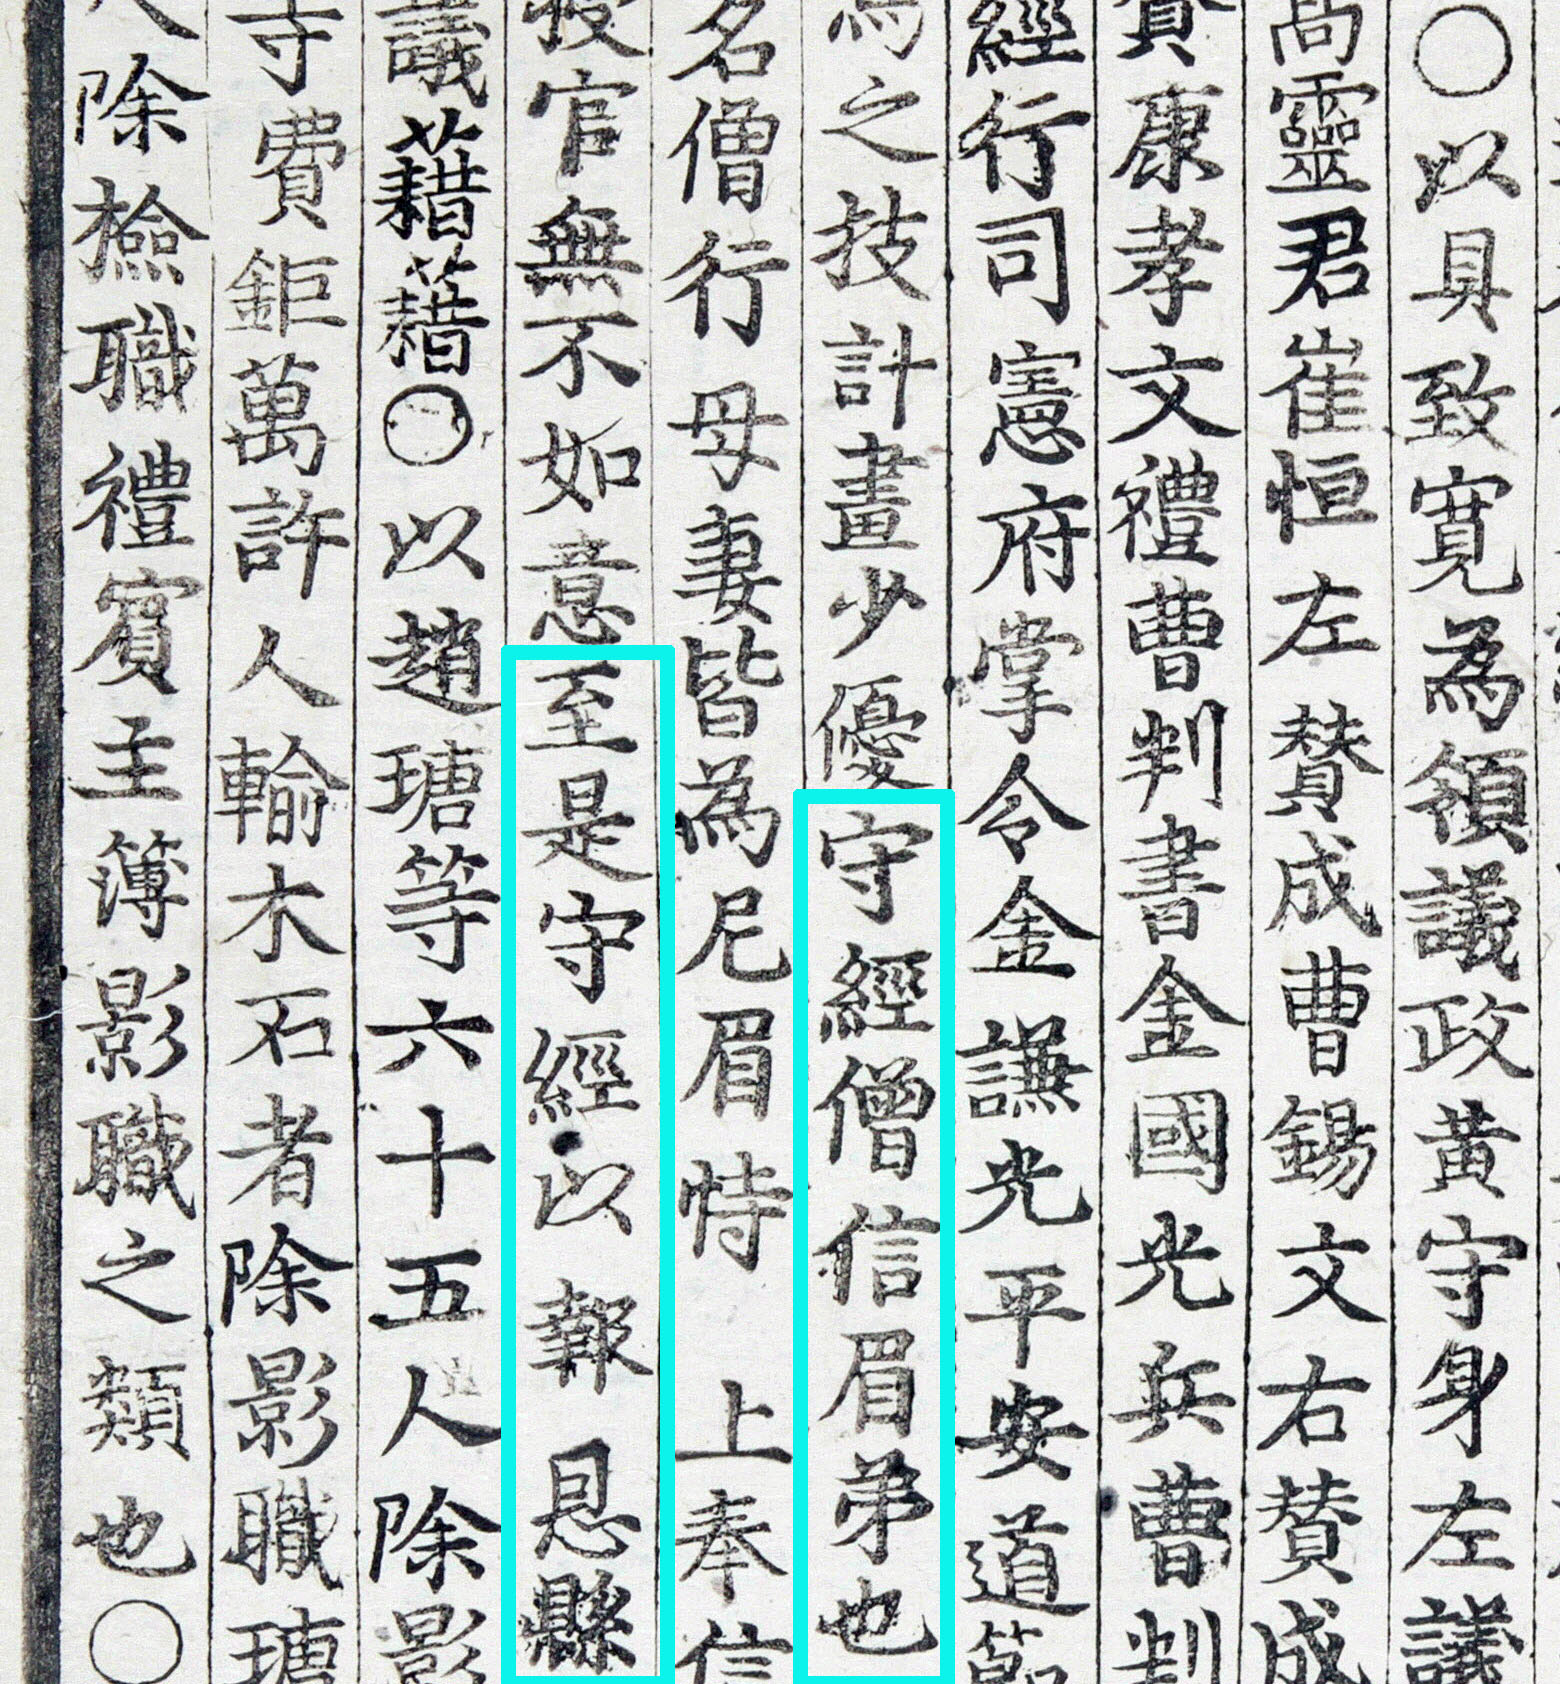 ○以具致寛為領議政黃守身左議
高靈君崔恒左賛成曹錫文右賛成
康孝文禮曹判書金國光兵曹判
經行司憲府掌令金謙光平安道節
為之技計畫少優守經僧信眉弟也
名僧行母妻皆為尼眉恃 上奉信
授官無不如意至是守經以報恩縣
議藉藉○以趙瑭等六十五人除影
寺費鉅萬許人輸木石者除影職瑭
除檢職禮賓主簿影職之類也○